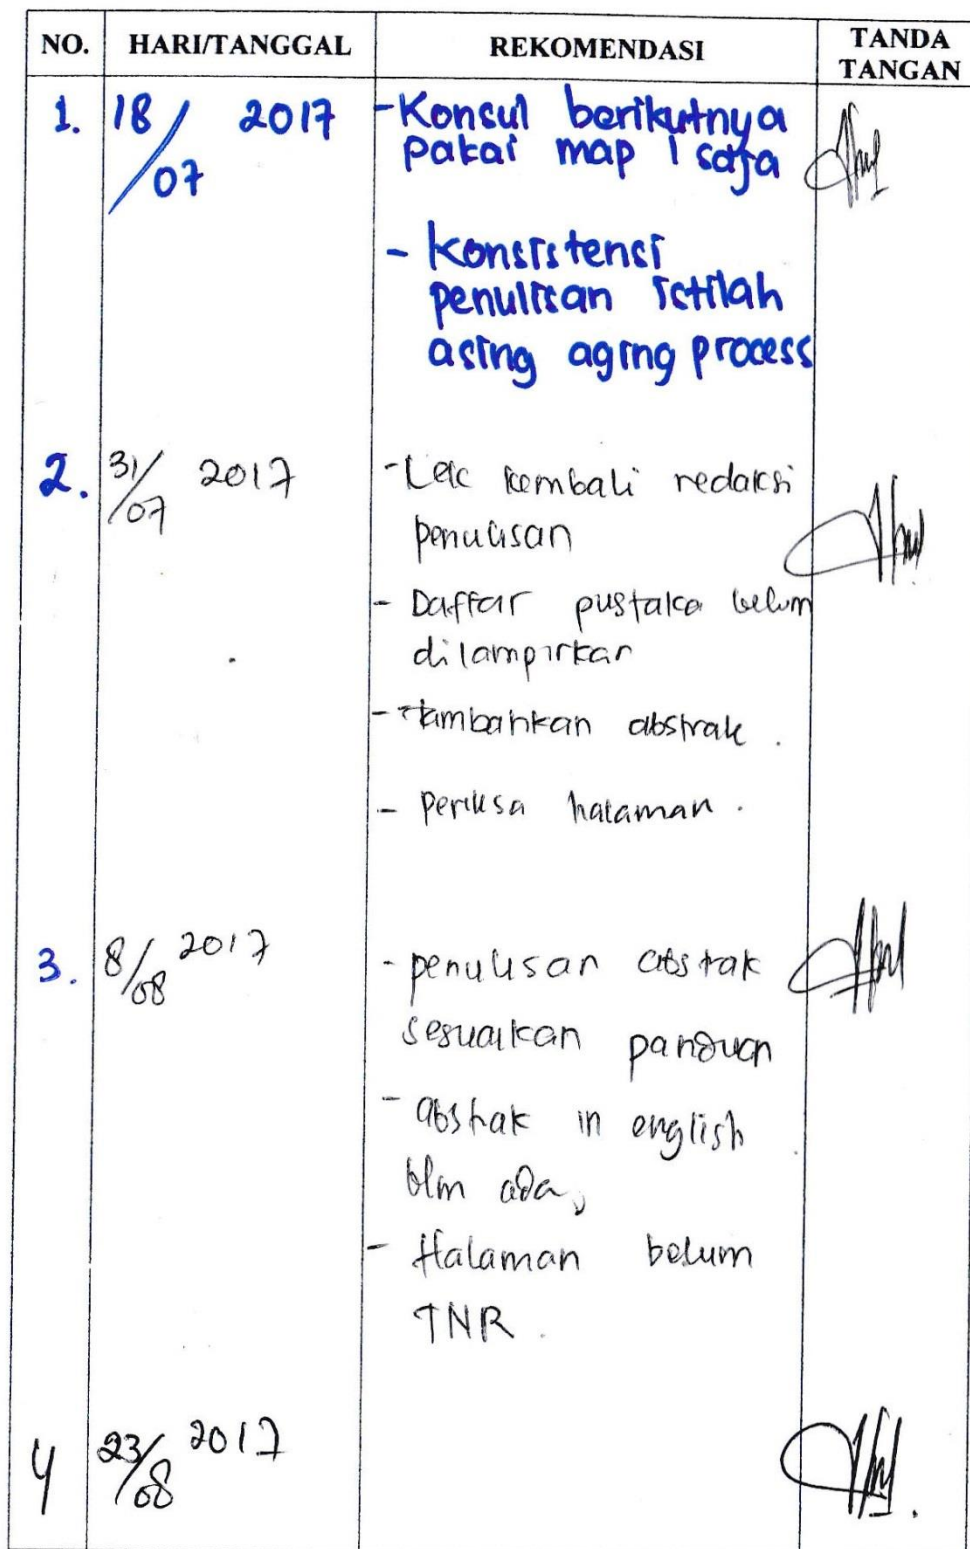 NO. HARI/TANGGAL REKOMENDASI TANDA TANGAN
1. 18/07 2017 - Konsul berikutnya
pakai map 1 saja
- Konsistensi
penulisan istilah
asing aging process
2. 31/07 2017 - Cek kembali redaksi
penulisan
- Daftar pustaka belum
dilampirkan
- Tambahkan abstrak .
- Periksa halaman .
3. 8/08 2017 - penulisan abstrak
sesuaikan panduan
- abstrak in english
blm ada,
- Halaman belum
TNR .
4 23/08 2017